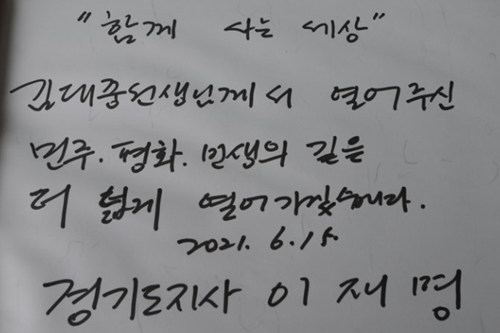 "함께 사는 세상"
김대중선생님께서 열어주신
민주. 평화. 민생의 길을
더 넓게 열어가겠습니다.
2021. 6. 15.
경기도지사 이재명